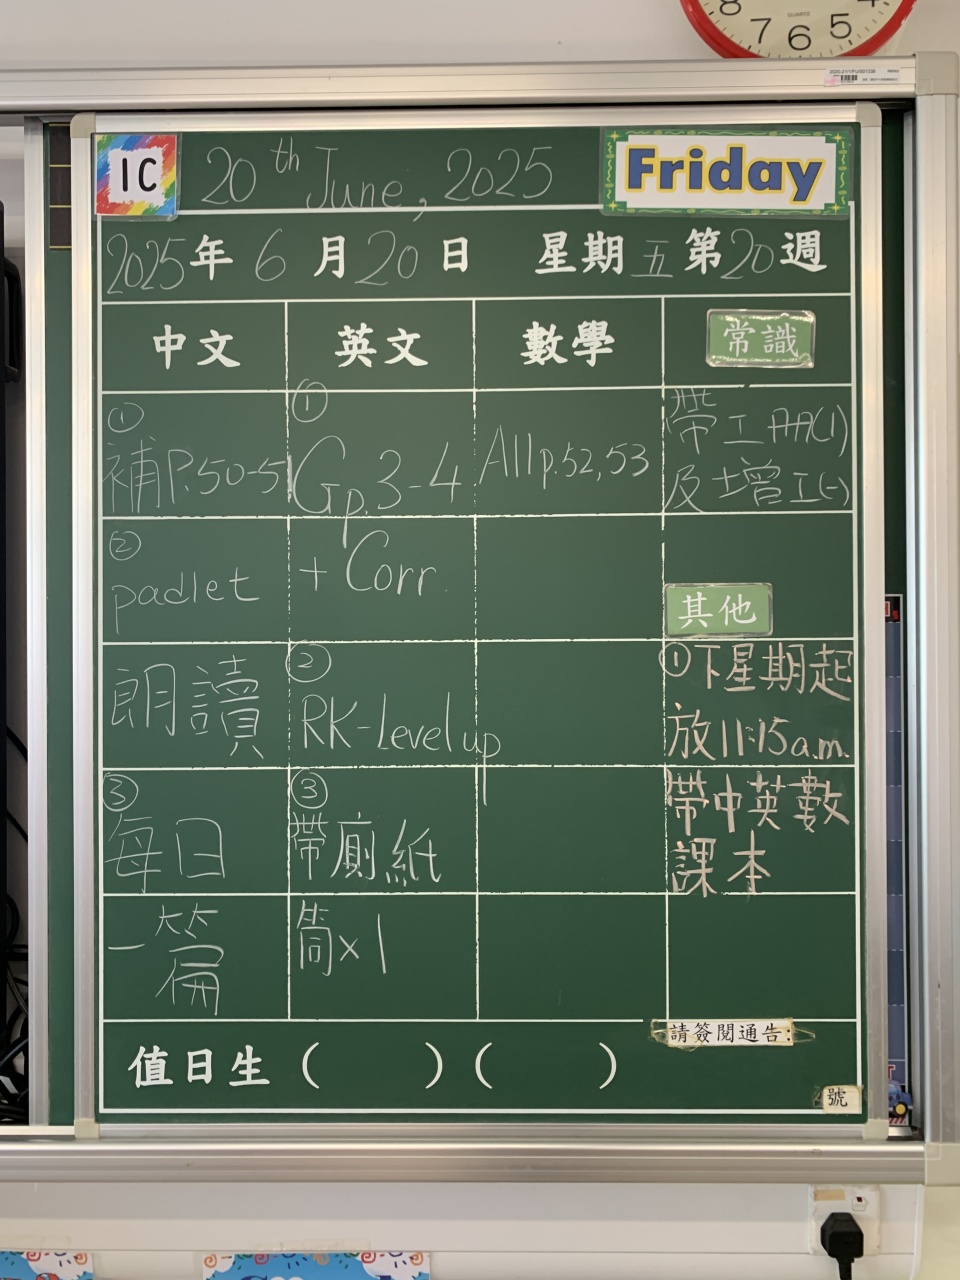 8 7 6 5 4
QUARTZ
1C 20th June, 2025 Friday
2025年6月20日 星期五 第20週
中文 英文 數學 常識
①
補P.50-51
②
padlet
朗讀
③
每日
一篇
①
Gp.3-4
+ Corr.
②
RK-Level up
③
帶廁紙
筒x1
All p.52,53
帶工冊(1)
及增工(一)
其他
①下星期起
放11:15a.m.
帶中英數
課本
請簽閱通告:
值日生 ( ) ( )
號